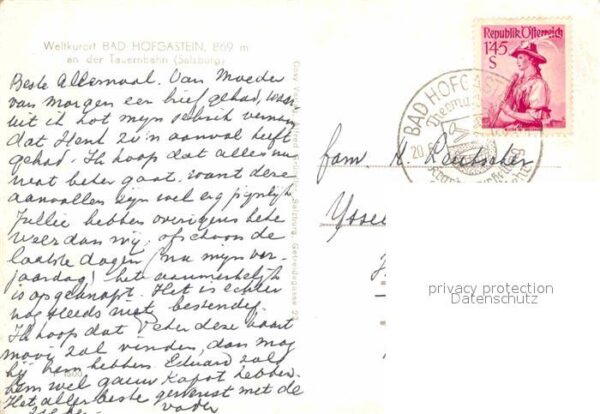 Weltkurort BAD HOFGASTEIN, 869 m
an der Tauernbahn (Salzburg)
Beste Allemaal. Van Moeder
van morgen een brief gehad, waar
uit ik tot mijn vernam
dat Henk zo'n aanval heeft
gehad. Ik hoop dat alles nu
wat beter gaat. want deze
aanvallen zijn wel erg pijnlijk
Jullie hebben overigens beter
weer dan wij, ofschoon de
laatste dagen (na mijn ver-
jaardag) het aanmerkelijk
is opgeknapt. Het is echter
nog steeds niet bestendig.
Ik hoop dat Peter deze kaart
mooi zal vinden, dan mag
hij hem hebben. Eduard zal
hem wel gauw kapot hebben.
Het allerbeste gewenst met de
vader
Republik Österreich
1'45
S
BAD HOFGAST
20.
fam. K.
privacy protection
Datenschutz